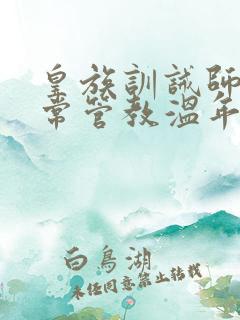 皇族訓誡師
常管教溫年
白鳥湖
未經同意禁止轉載